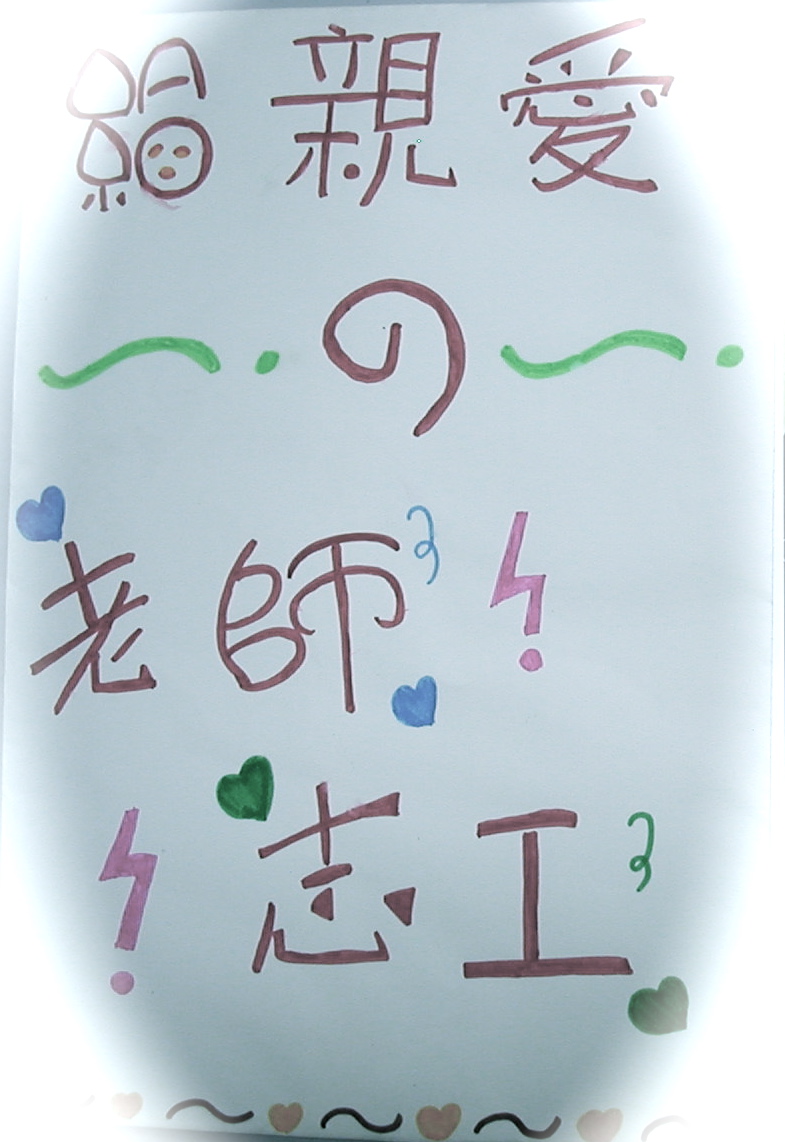 給親愛
の
老師
志工